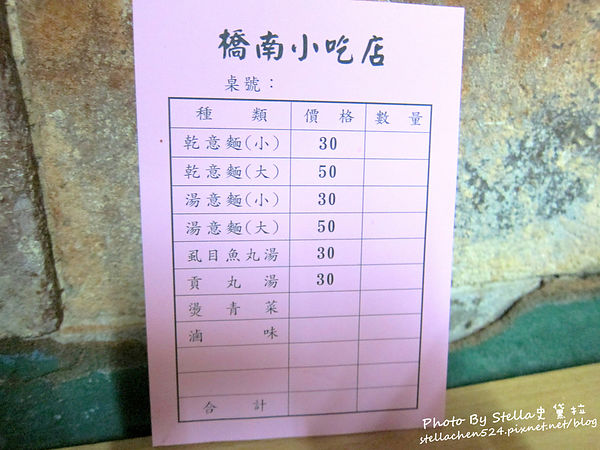 橋南小吃店
桌號：
種類 價格 數量
乾意麵(小) 30
乾意麵(大) 50
湯意麵(小) 30
湯意麵(大) 50
虱目魚丸湯 30
貢丸湯 30
燙青菜
滷味
合計
Photo By Stella史黛拉
stellachen524.pixnet.net/blog